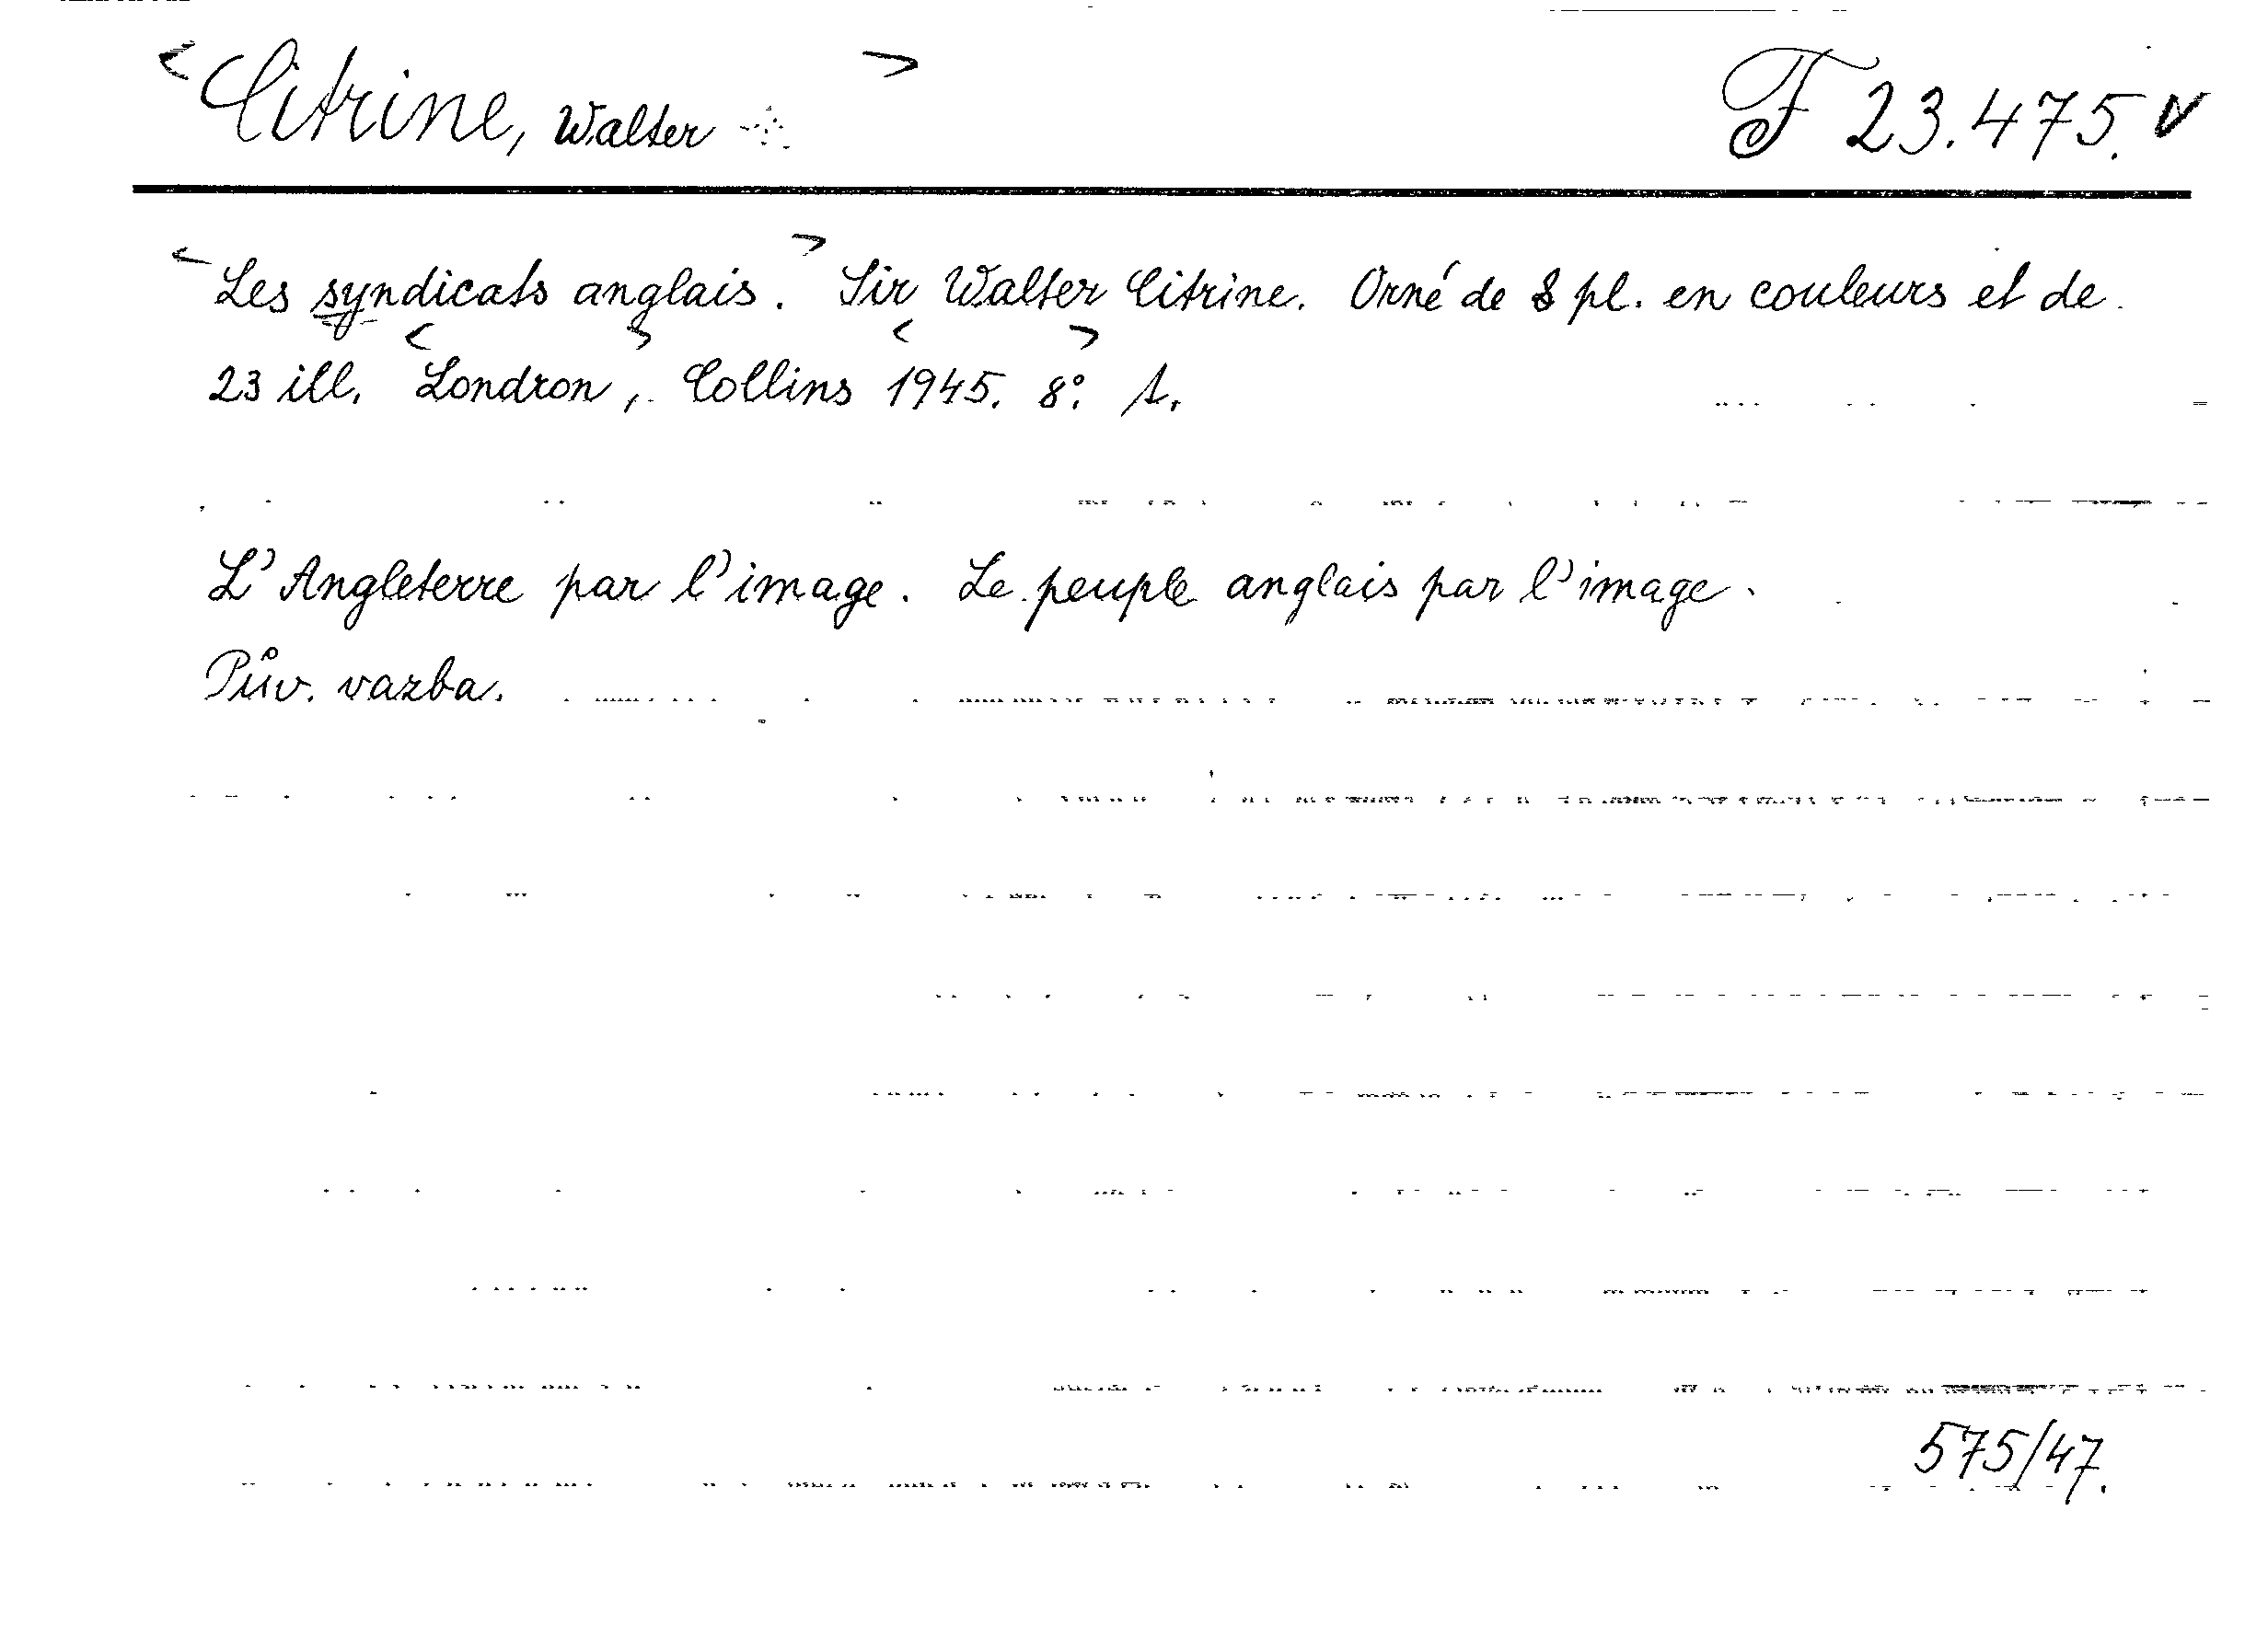 <Citrine, Walter > F 23.475. v
<Les syndicats anglais.> Sir Walter Citrine. Orné de 8 pl. en couleurs et de
23 ill. <Londron>, Collins <1945.> 8°.
L'Angleterre par l'image. Le peuple anglais par l'image.
Pův. vazba.
575/47.